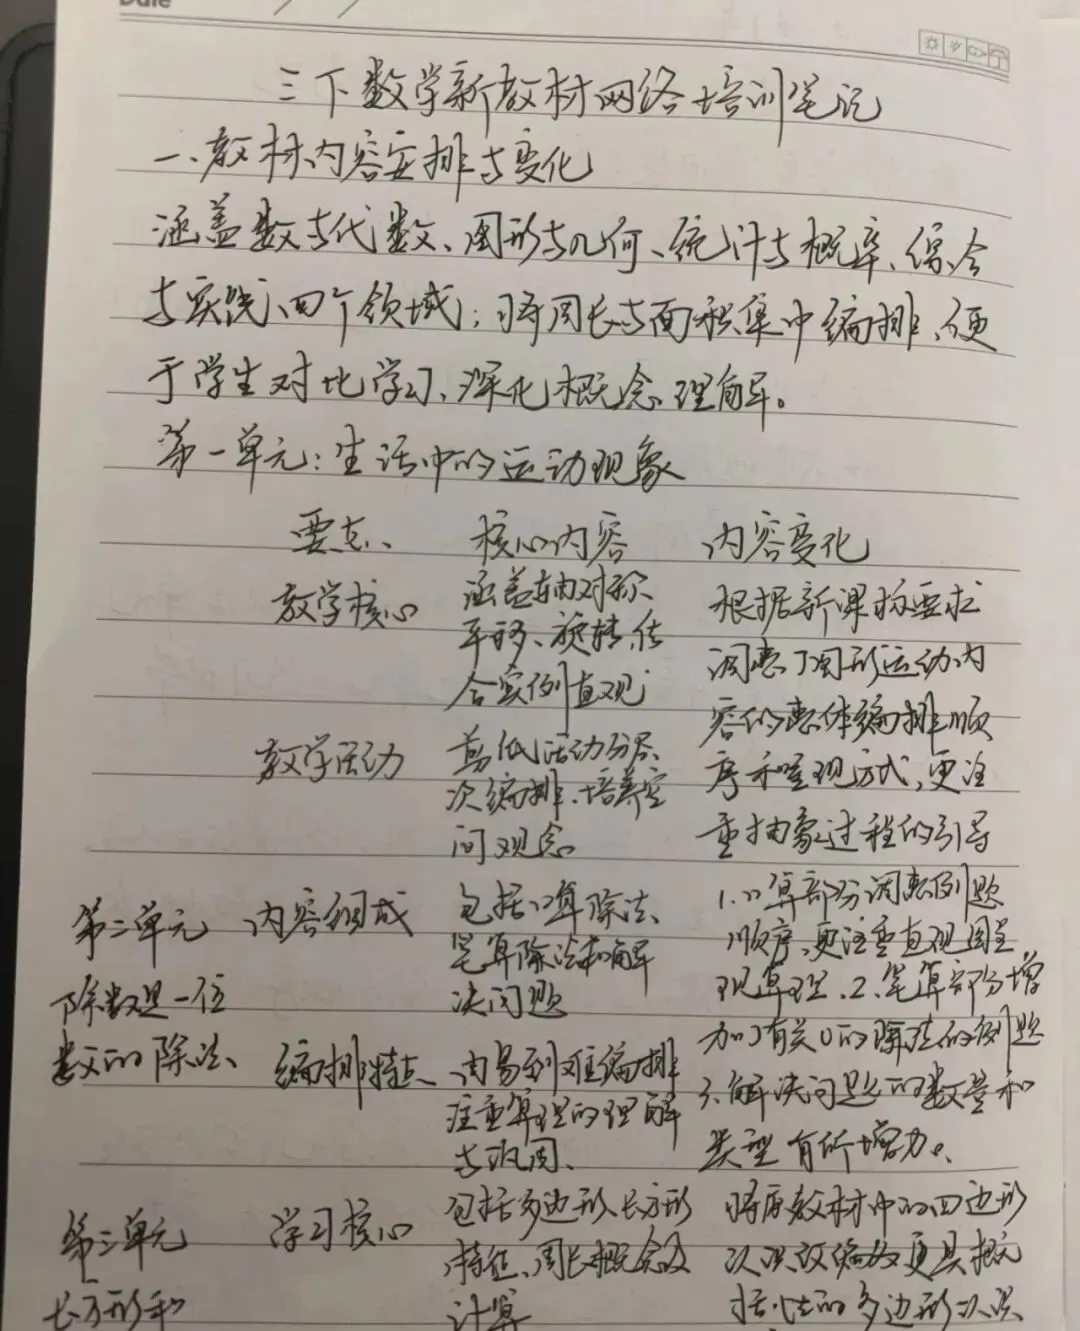 Date
三下数学新教材网络培训笔记
一、教材内容安排与变化
涵盖数与代数、图形与几何、统计与概率、综合
与实践四个领域；将周长与面积集中编排、便
于学生对比学习、深化概念理解。
第一单元：生活中的运动现象
要点、 核心内容 内容变化
教学核心 涵盖轴对称 根据新课标要求
平移、旋转，结 调整了图形运动内
合实例直观 容的整体编排顺
教学活动 剪纸活动分层 序和呈现方式，更注
次编排、培养空 重抽象过程的引导
间观念
第二单元 内容组成 包括口算除法、 1.口算部分调整例题
笔算除法和解 顺序，更注重直观图呈
除数是一位 决问题 现算理、2、笔算部分增
数的除法、 编排特点、 由易到难编排 加了有关0的除法的例题
注重算理的理解 3、解决问题的数量和
与巩固、 类型有所增加。
第三单元 学习核心 包括多边形、长方形 将原教材中的四边形
特征、周长概念及 认识改编为更具概
长方形和 计算 括性的多边形认识